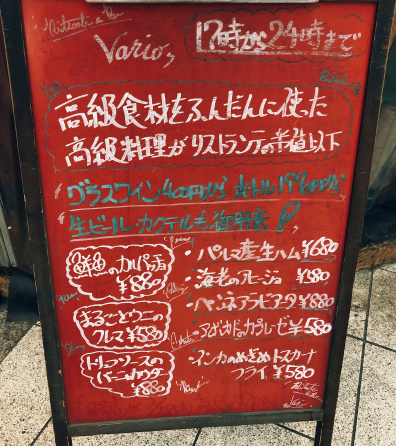 Vario,
17時から24時まで
高級食材をふんだんに使った
高級料理がリストランテの半値以下
グラスワイン400円から ボトル1980円から
生ビール・カクテルも御用意!
鮮魚のカルパッチョ
¥880
・パルマ産生ハム¥680
・海老のアヒージョ ¥880
まるごとウニの
フレマ ¥580
・ペンネアラビアータ ¥880
・アボカドのカプレーゼ ¥580
トリュフソースの
バーニャカウダ
¥880
トスカーナ
フライ ¥580